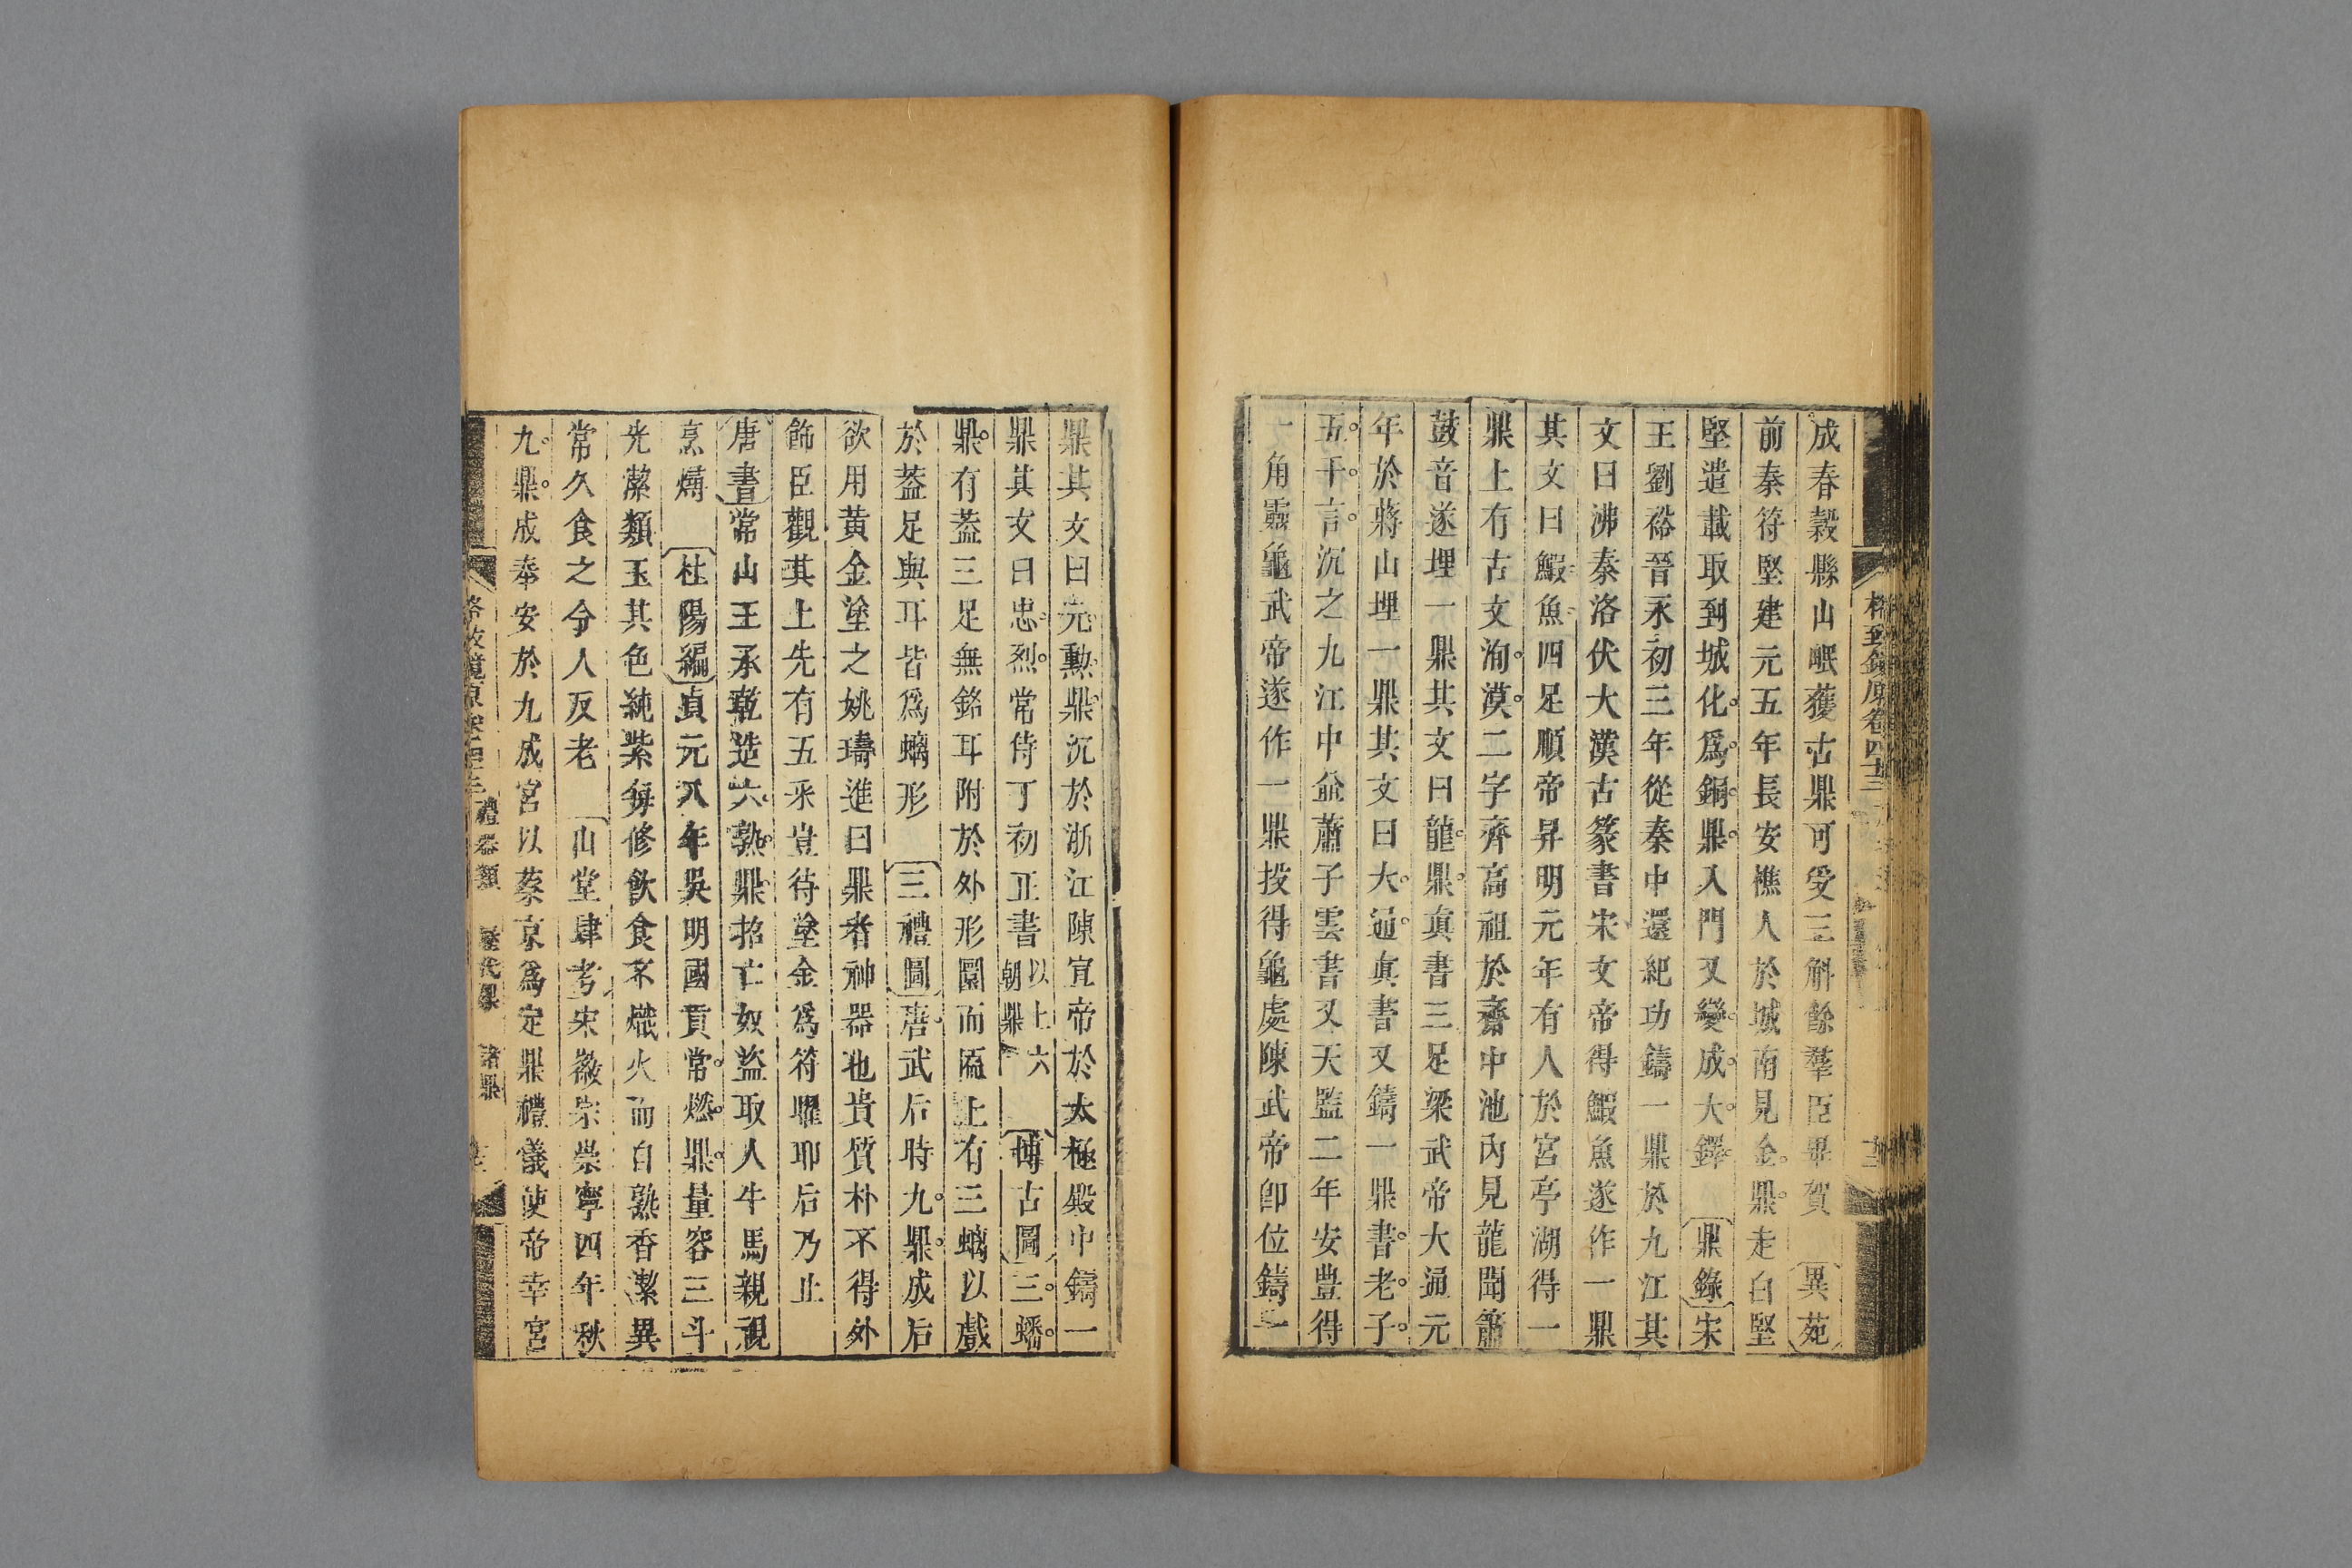 格致鏡原卷四十三
成春穀縣山岷獲古鼎可受三斛餘羣臣畢賀 異苑
前秦符堅建元五年長安樵人於城南見金鼎走白堅
堅遣載取到城化爲銅鼎入門又變成大鐸 鼎錄 宋
王劉裕晉永初三年從秦中還紀功鑄一鼎於九江其
文曰沸秦洛伏大漢古篆書宋文帝得鰕魚遂作一鼎
其文曰鰕魚四足順帝昇明元年有人於宮亭湖得一
鼎上有古文洵漠二字齊高祖於齋中池內見龍聞簫
鼓音遂埋一鼎其文曰龍鼎真書三足梁武帝大通元
年於蔣山埋一鼎其文曰大通真書又鑄一鼎書老子
五千言沉之九江中並蕭子雲書又天監二年安豊得
一角靈龜武帝遂作一鼎投得龜處陳武帝卽位鑄一
鼎其文曰元勲鼎沉於浙江陳宣帝於太極殿中鑄一
鼎其文曰忠烈常侍丁初正書 以上六朝鼎 博古圖 三螭
鼎有蓋三足無銘耳附於外形圜而匾上有三螭以戲
於蓋足與耳皆爲螭形 三禮圖 唐武后時九鼎成后
欲用黄金塗之姚璹進曰鼎者神器也貴質朴不得外
飾臣觀其上先有五采豈待塗金爲符曜耶后乃止
唐書 常山王承乾造六熟鼎招亡奴盜取人牛馬親視
烹燖 杜陽編 貞元八年吳明國貢常燃鼎量容三斗
光潔類玉其色純紫每修飲食不熾火而自熟香潔異
常久食之令人反老 山堂肆考 宋徽宗崇寧四年秋
九鼎成奉安於九成宮以蔡京爲定鼎禮儀使帝幸宮
格致鏡原卷四十三 禮器類 歷代鼎 諸鼎